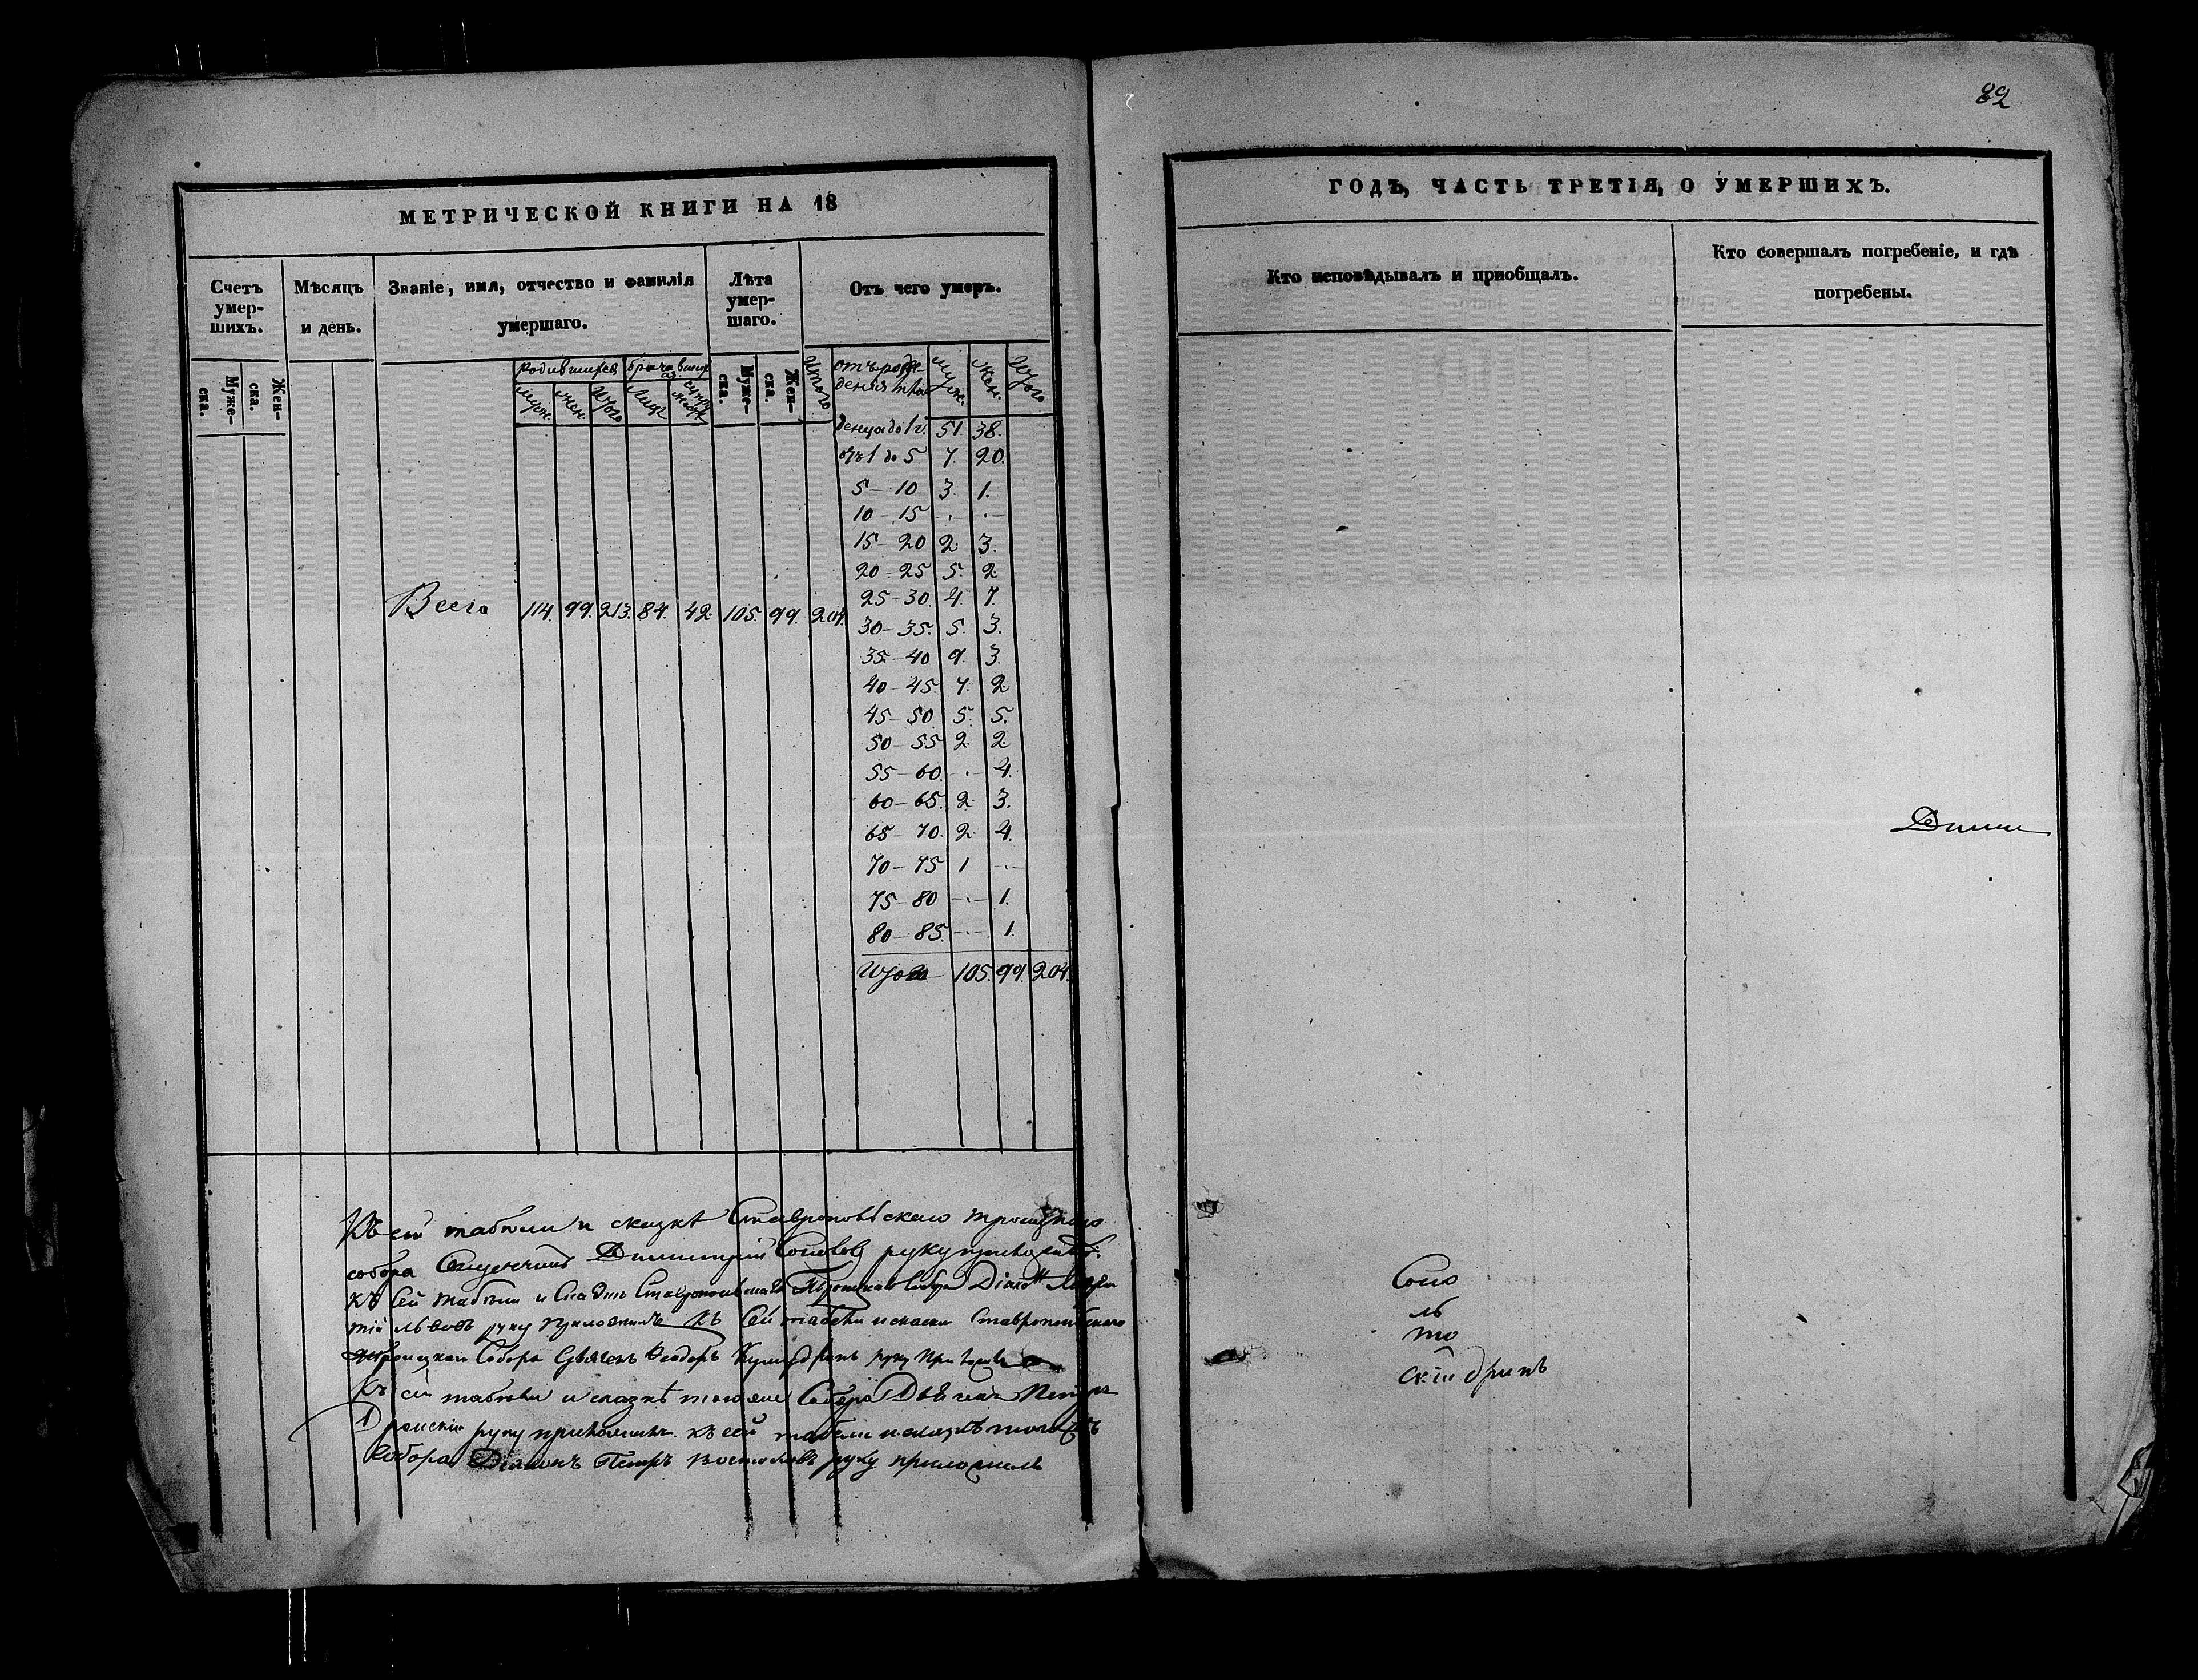 82
МЕТРИЧЕСКОЙ КНИГИ НА 18
ГОДЪ, ЧАСТЬ ТРЕТІЯ, О УМЕРШИХЪ.
Счетъ умер-шихъ.
Муже-ска.
Жен-ска.
Мѣсяцъ и день.
Званіе, имя, отчество и фамилія умершаго.
Лѣта умер-шаго.
Муже-ска.
Жен-ска.
Отъ чего умеръ.
Кто исповѣдывалъ и приобщалъ.
Кто совершалъ погребеніе, и гдѣ погребены.
родившихся
муж. жен. Итого
Итого
отъ рож
денія мла муж. жен. Итого
денца до 1 г. 51. 38.
отъ 1 до 5 7. 20.
5 - 10 3. 1.
10 - 15 - . - - . -
15 - 20 2. 3.
20 - 25 5. 2
25 - 30. 4. 7.
Всего 114. 99. 213. 84. 42. 105. 99. 204.
30 - 35. 5. 3.
35 - 40 9. 3.
40 - 45. 7. 2
45 - 50 5. 5.
50 - 55 2. 2
55 - 60. - . - 4.
60 - 65. 2. 3.
65 - 70. 2. 4.
70 - 75 1 - . -
75 - 80 - . - 1.
80 - 85. - . - 1.
Итого 105. 99. 204.
Къ сей табели и сказкѣ Ставропольскаго троицкаго
собора Священникъ Димитрій руку приложилъ.
Къ Сей табели и Ставропольскаго Троицкаго Собора Діако
тій Львовъ руку приложилъ Къ Сей табели и сказки Ставропольскаго
троицкаго Собора Ѳеодоръ руку приложилъ
Къ сей табели и сказкѣ тогоже Собора Петръ
руку приложилъ. Къ сей табели и сказкѣ тогожъ
Собора Діаконъ Петръ руку приложилъ
Дими
Соло
ль
то
скій дринъ